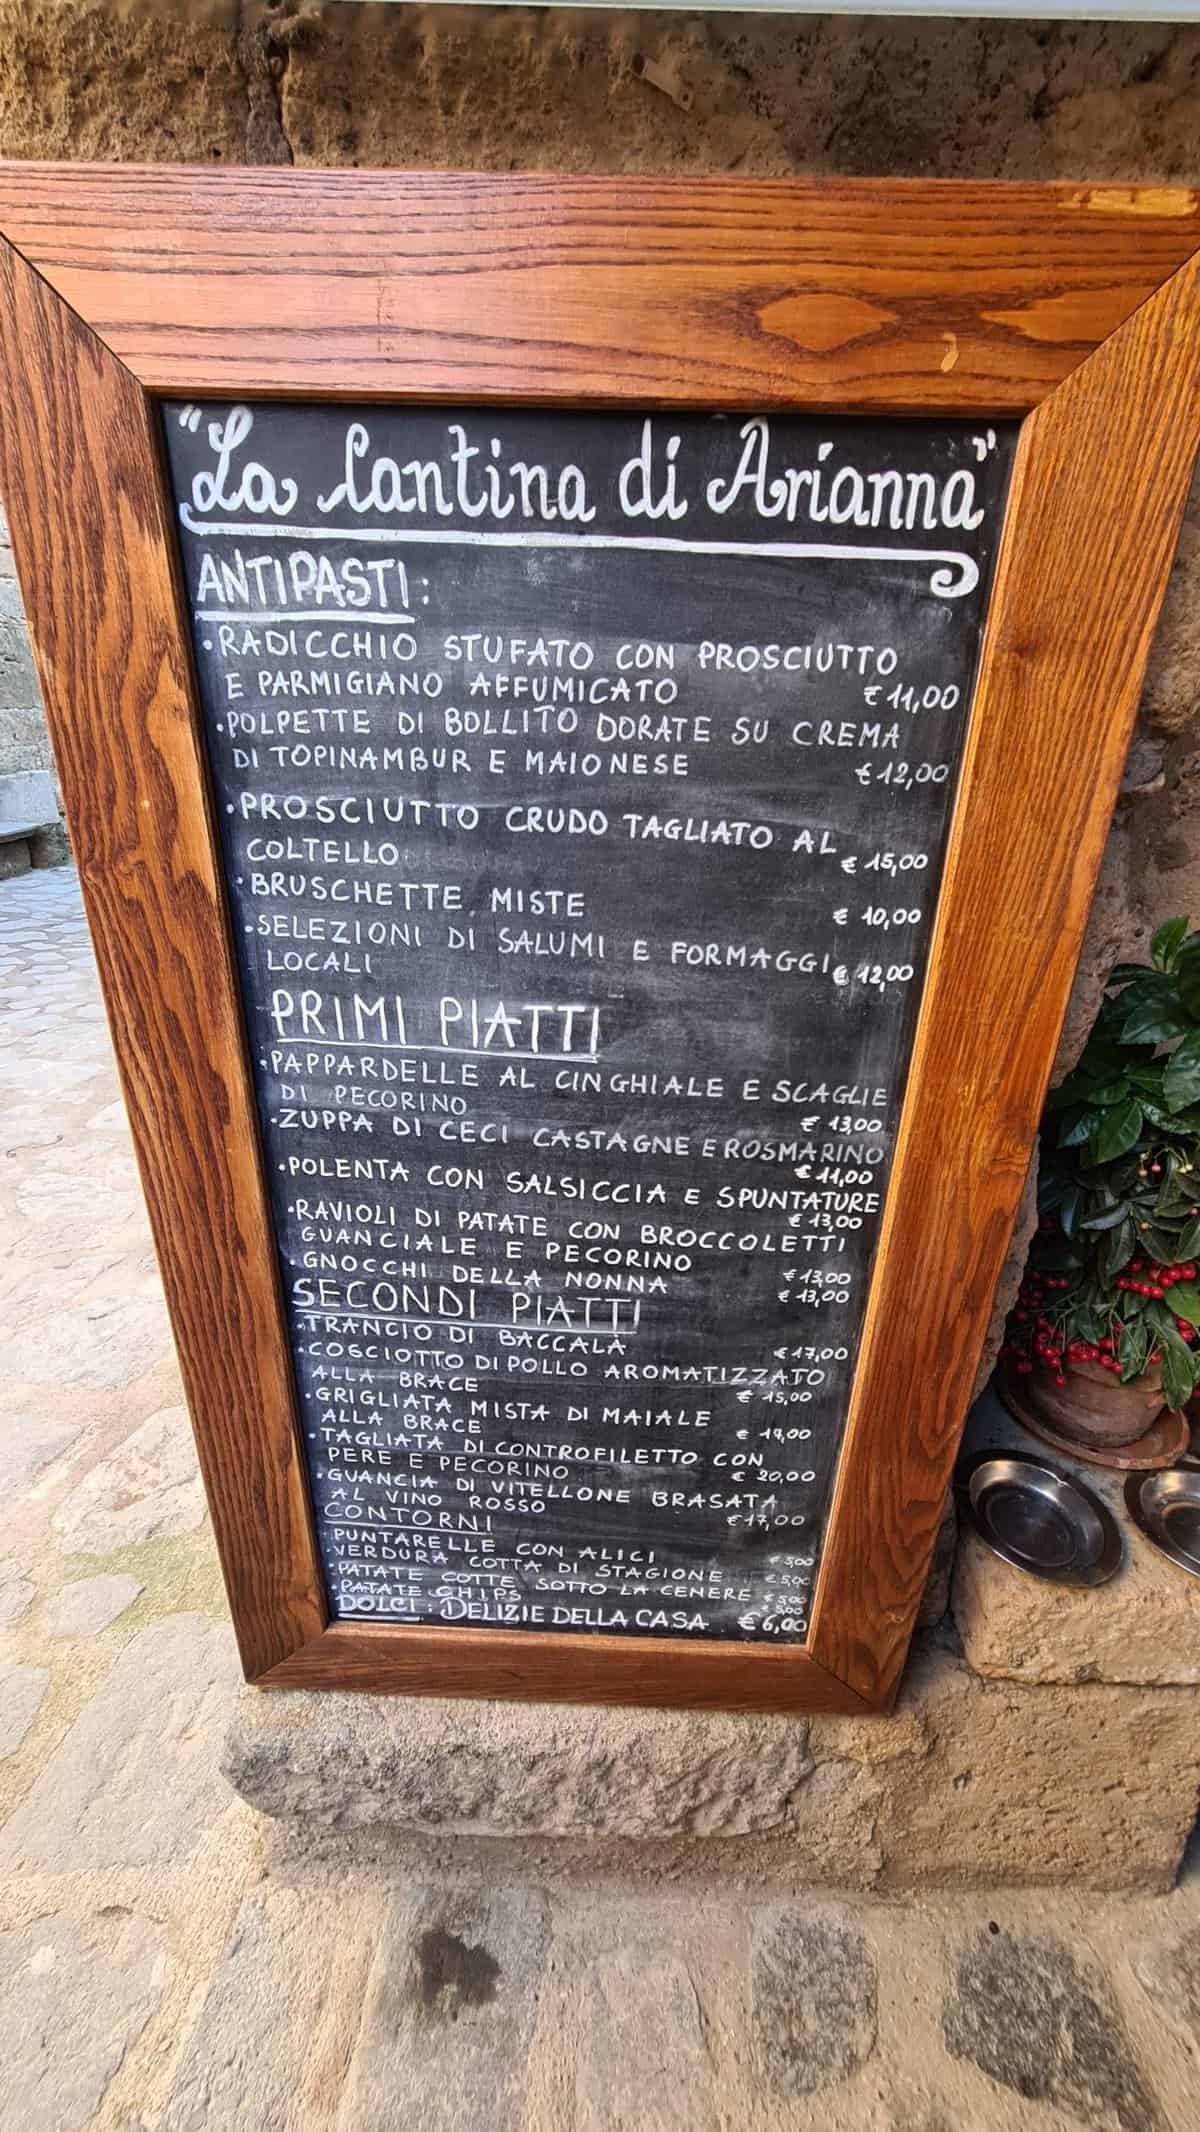 "La Cantina di Arianna"
ANTIPASTI:
•RADICCHIO STUFATO CON PROSCIUTTO
E PARMIGIANO AFFUMICATO €11,00
•POLPETTE DI BOLLITO DORATE SU CREMA
DI TOPINAMBUR E MAIONESE €12,00
•PROSCIUTTO CRUDO TAGLIATO AL
COLTELLO € 15,00
•BRUSCHETTE MISTE € 10,00
•SELEZIONI DI SALUMI E FORMAGGI
LOCALI € 12,00
PRIMI PIATTI
•PAPPARDELLE AL CINGHIALE E SCAGLIE
DI PECORINO € 13,00
•ZUPPA DI CECI CASTAGNE E ROSMARINO
€ 11,00
•POLENTA CON SALSICCIA E SPUNTATURE
€ 13,00
•RAVIOLI DI PATATE CON BROCCOLETTI
GUANCIALE E PECORINO € 13,00
•GNOCCHI DELLA NONNA € 13,00
SECONDI PIATTI
•TRANCIO DI BACCALÀ € 17,00
•COSCIOTTO DI POLLO AROMATIZZATO
ALLA BRACE € 15,00
•GRIGLIATA MISTA DI MAIALE
ALLA BRACE €
•TAGLIATA DI CONTROFILETTO CON
PERE E PECORINO € 20,00
•GUANCIA DI VITELLONE BRASATA
AL VINO ROSSO €17,00
CONTORNI
•PUNTARELLE CON ALICI € 5,00
•VERDURA COTTA DI STAGIONE € 5,00
•PATATE COTTE SOTTO LA CENERE € 5,00
•PATATE CHIPS € 5,00
DOLCI: DELIZIE DELLA CASA €6,00